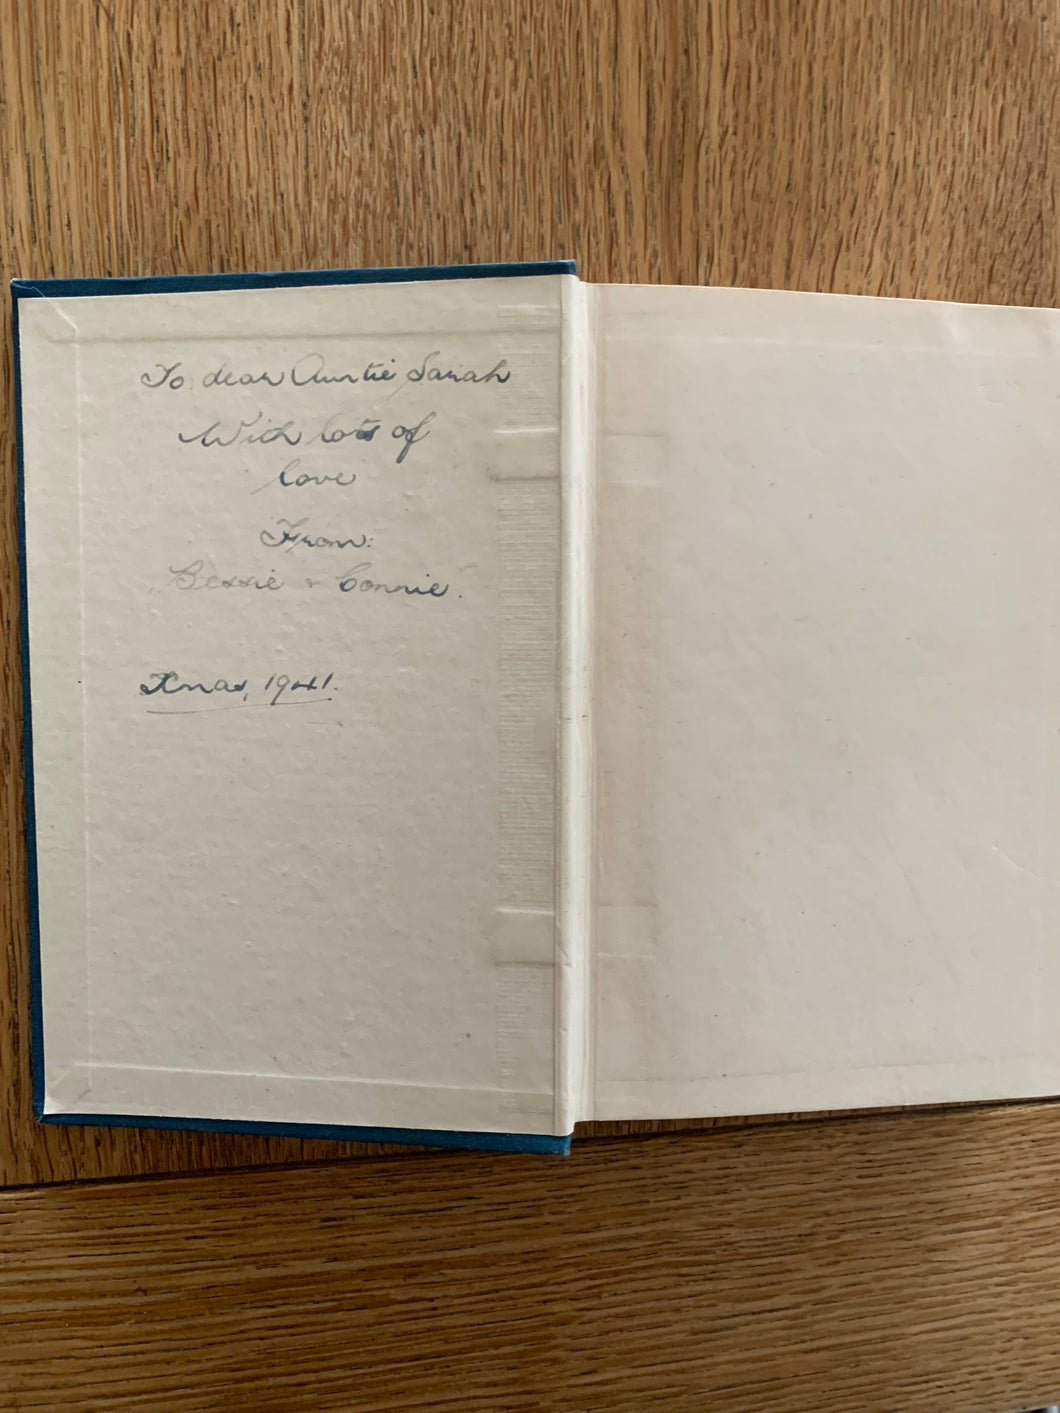 To dear Auntie Sarah
With lots of
love
From:
Bessie & Connie.
Xmas, 1941.